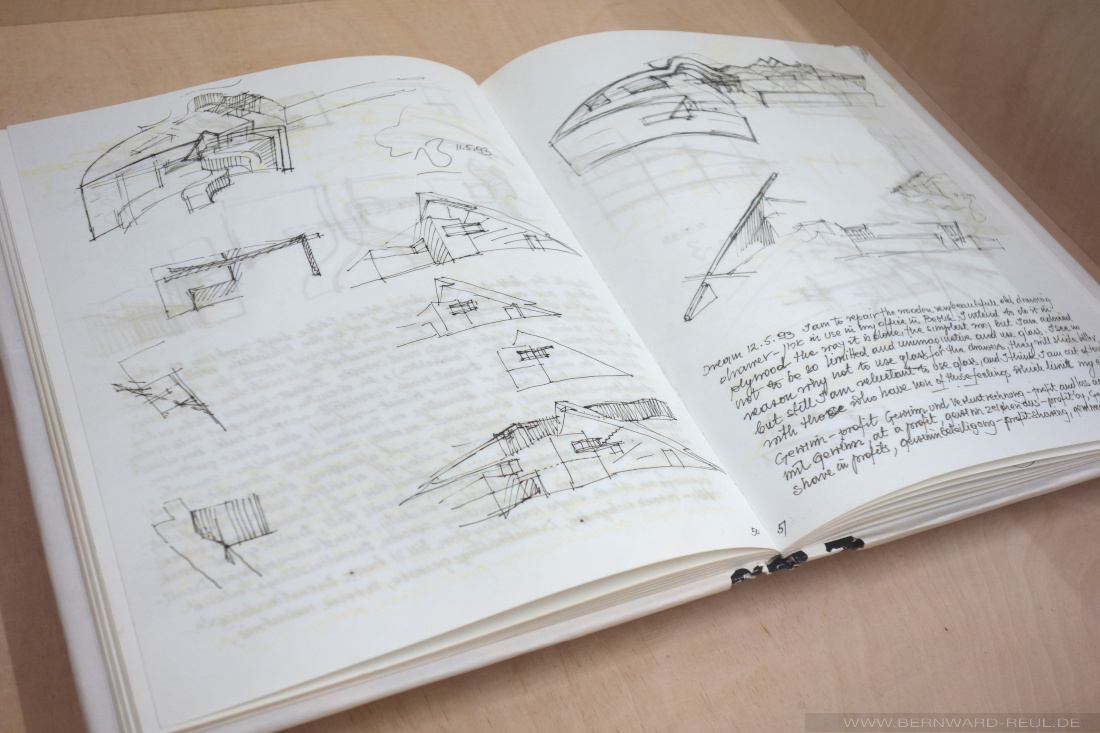 11.5.93
56
57
12.5.93 I am to repair the wooden very beautifull old drawing
in use in my office in I intend to do it in
plywood the way it is done, the simplest way but I am advised
not to be so limited and unimaginative and use glass. I see no
reason why not to use glass for the drawers, they will slide
but still I am reluctant to use glass, and I think I am out of
with those who have non of those feelings which limit my
Gewinn-profit Gewinn und Verlustrechnung-profit and loss
mit Gewinn at a profit, gewinn
share in profits, Gewinnbeteiligung-profitsharing,
WWW.BERNWARD-REUL.DE